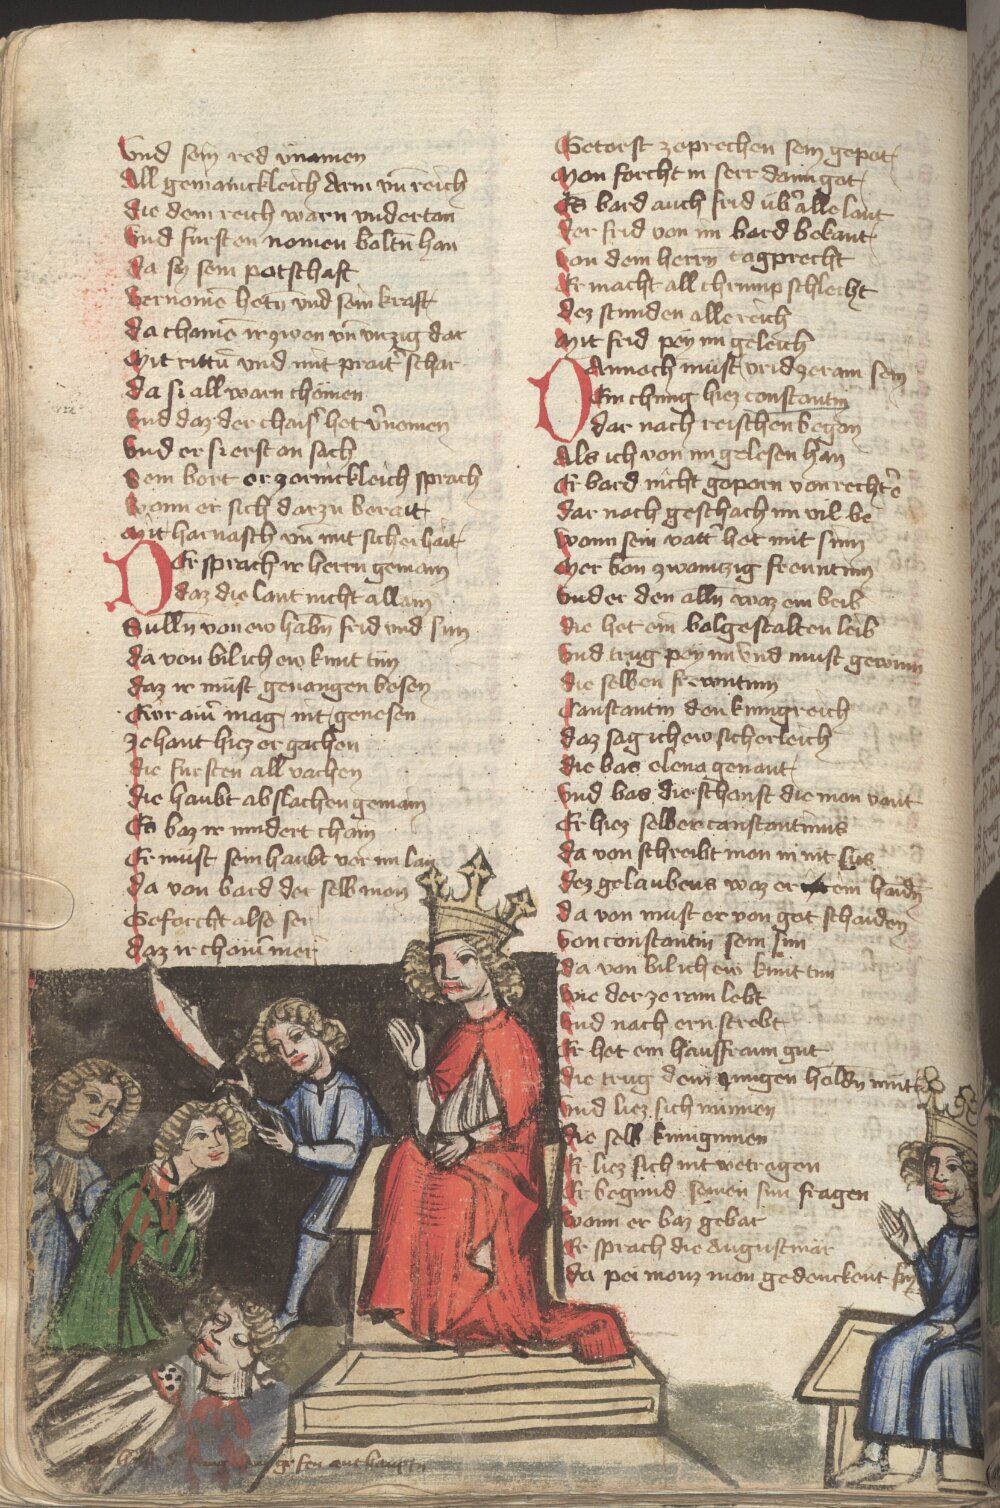 Vnd sein red v̄namen
All gemainckleich Arm vn̄ reich
die dem reich warn vndertan
Vnd fursten nomen boltn̄ han
da sy sein potschaft
vernomē hetn̄ vnd sein kraft
da chomē ir zwen vn̄ virzig dar
Mit rittn̄ vnd mit praitˀ schar
da si all warn chömen
Vnd daz der chaisˀ het v̄nomen
Vnd er si erst an sach
Sein bort er zornickleich sprach
wann er sich darzu berait
Mit harnasch vn̄ mit sicherhait
Er sprach ir herrn gemain
daz die lant nicht allain
Sulln̄ von ew habn̄ frid vnd sun
da von bil ich ew kunt tün
daz ir müst genangen besen
Ewr ainˀ mag nit genesen
zehant hiez er gachen
die fursten all vachen
die haubt abslachen gemain
Es baz ir nindert chain
Er müst sein haubt vor im lan
da von bard der selb mon
Geforcht also ser
daz ir chainˀ mer
Getorst zeprechen sein gepot
Mon forcht in serr dann got
Es bard auch frid übˀ alle lant
der frid von im bard bekant
von dem herrn tagprecht
Er macht all chrump schlecht
dez stunden alle reich
Mit frid pey im geleich
Dannoch müst vrid ze ram sein
Ein chunig hiez constantin
dar nach reischen began
Als ich von im gelesen han
Er bard nicht geporn von rechtˀ e
dar nach geschach im vil be
wann sein vatˀ het mit sinn
Mer ban zwainzig freuntinn
Vnder den alln̄ waz ein beib
die het ein bolgestalten leib
Vnd trug pey im vnd must gewinn
die selben frewntinn
Canstantin den kunigreich
daz sag ich ew sicherleich
die bas elena genant
Vnd bas die schonst die mon vant
Er hiez selber canstantinus
da von schreibt mon in nit sus
dez gelaubens waz er ein haidn̄
da von must er von got schaiden
von constantin sein sun
da von bil ich ew kunt tun
wie der ze ram lebt
Vnd nach ern strebt
Er het ein hausfraun gut
die trug dem iungen holdn̄ mut
Vnd liez sich minnen
die selb kuniginnen
Er liez sich nit wetragen
Er begund seinen sun fragen
wann er baz gebar
Er sprach die Augustinär
da pei monz mon gedenckent